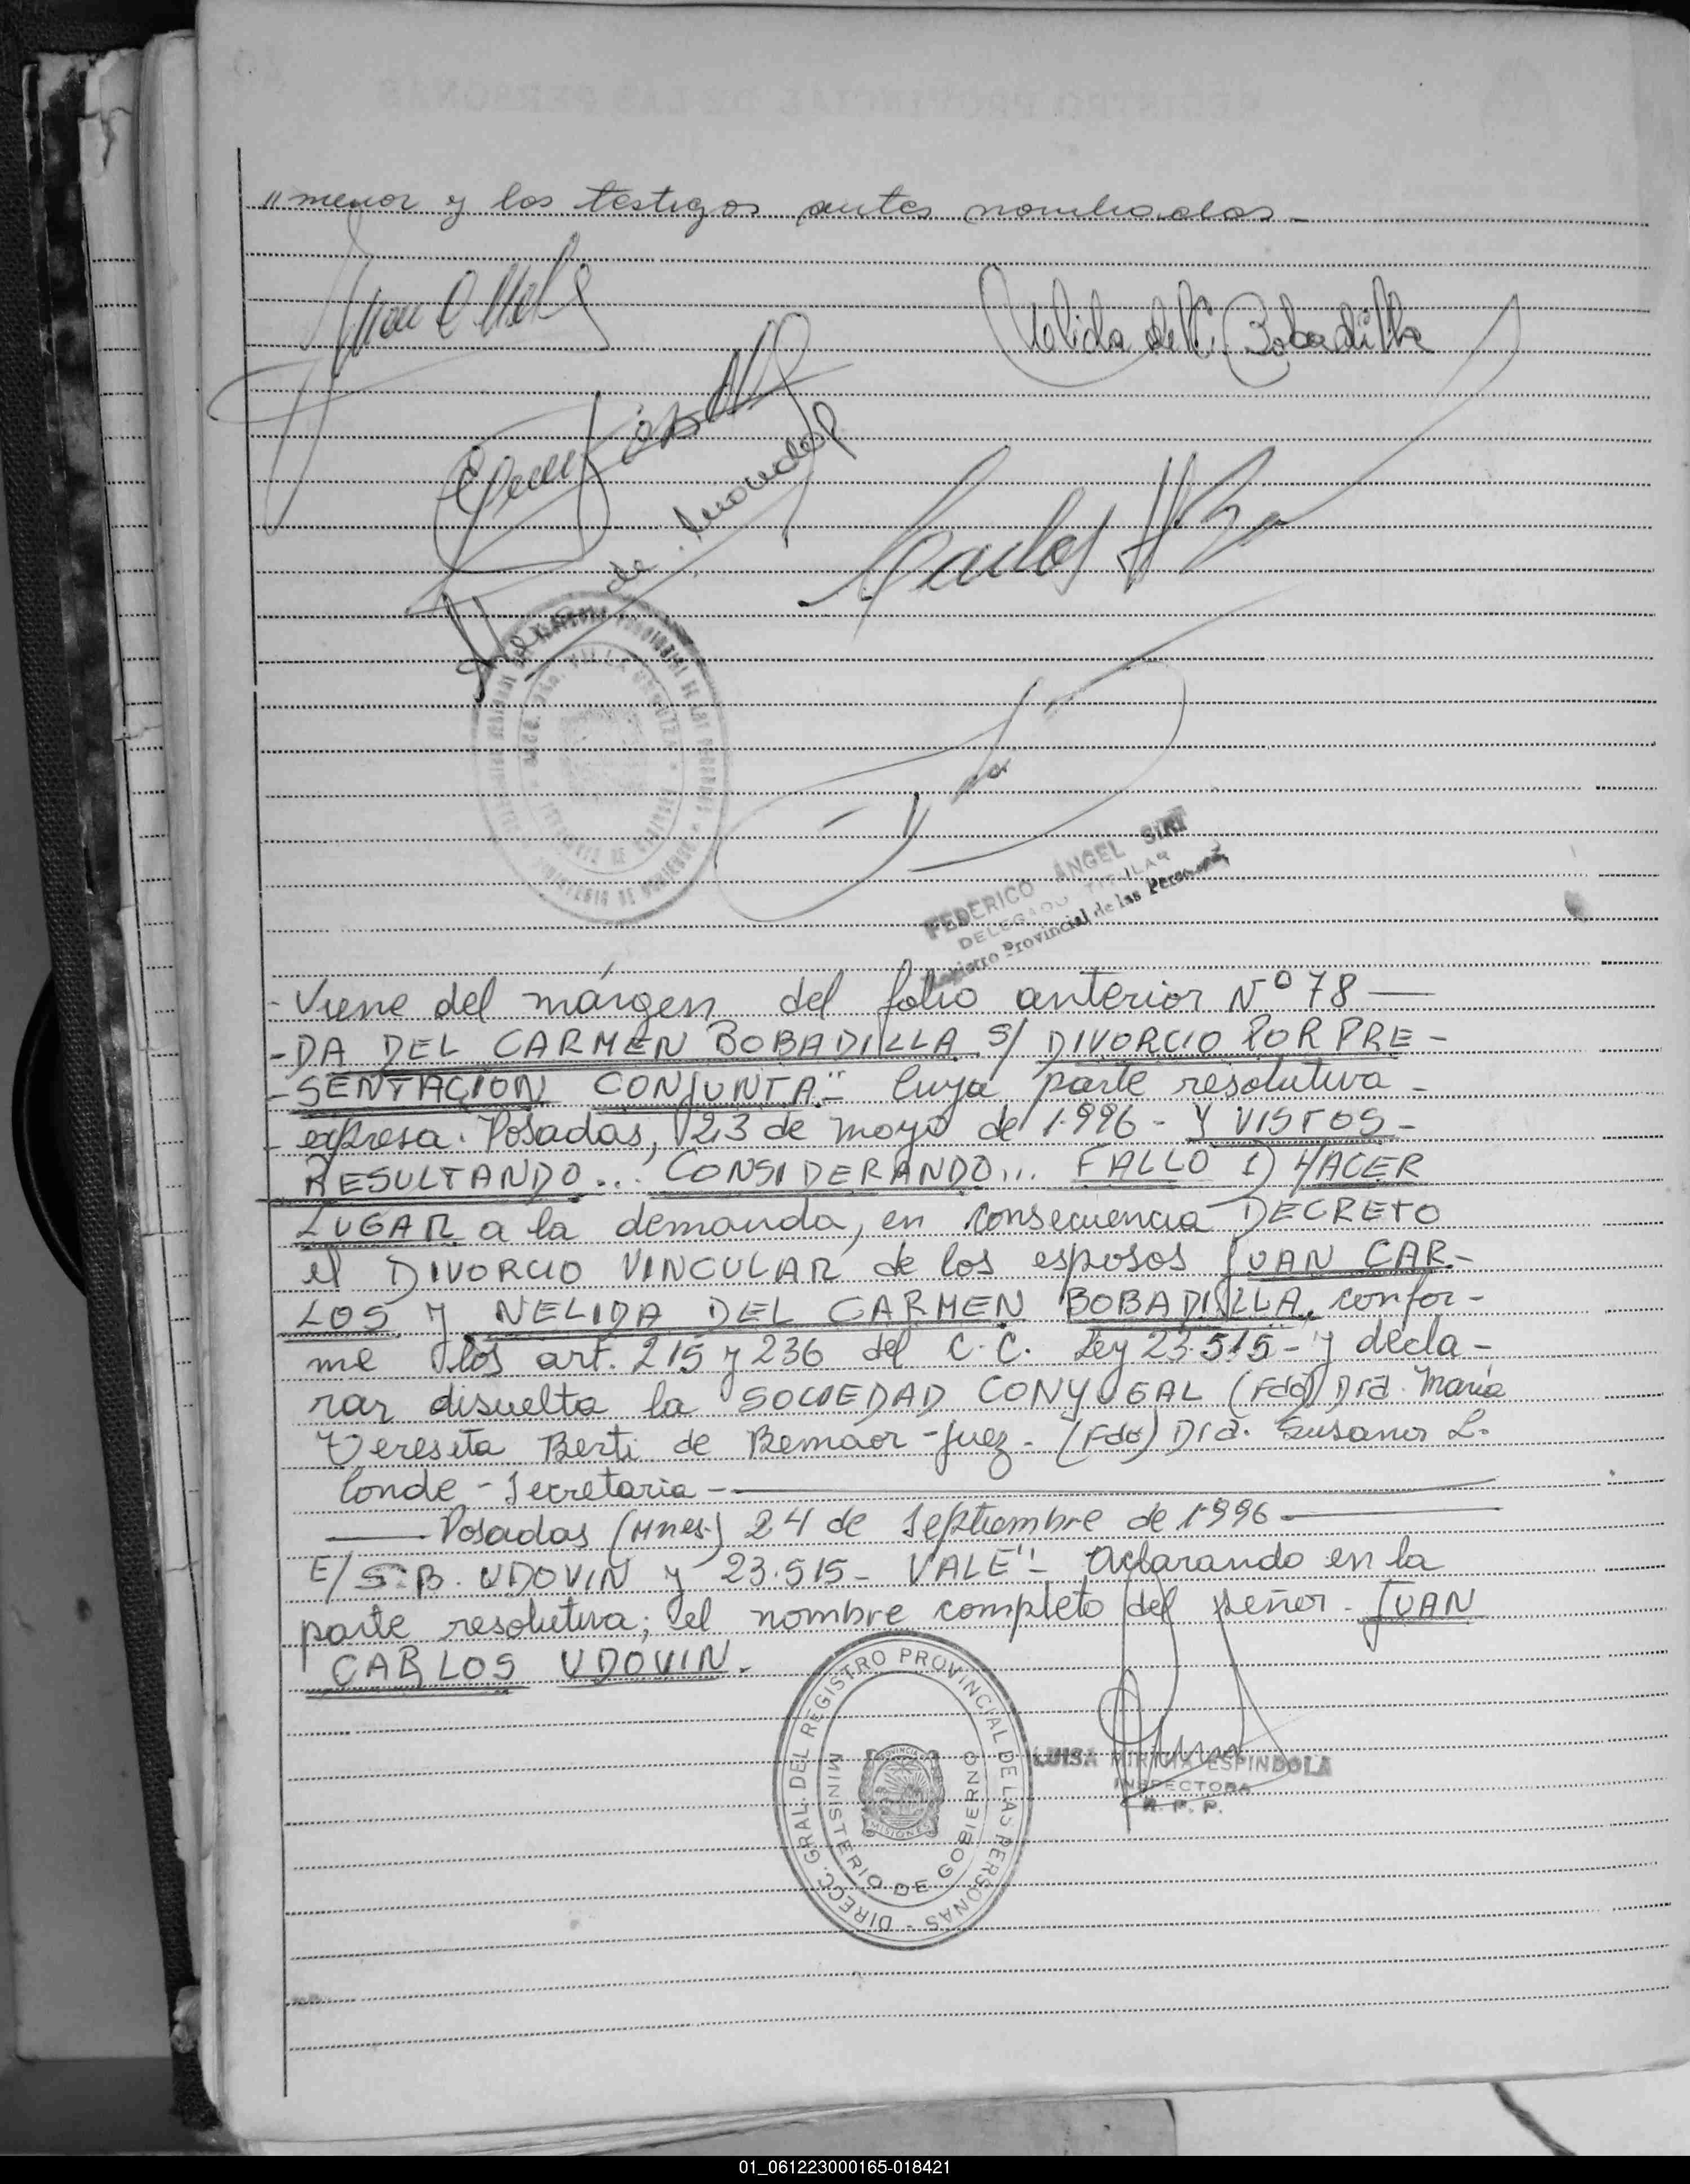 "menor y los testigos antes nombrados.-
Nelida del C. Bobadilla
de Miranda
Carlos
FEDERICO ANGEL SIRI
DELEGADO TITULAR
Registro Provincial de las Personas
- Viene del márgen del folio anterior Nº 78 —
-DA DEL CARMEN BOBADILLA S/ DIVORCIO POR PRE-
-SENTACION CONJUNTA"- Cuya parte resolutiva -
- expresa. Posadas, 23 de mayo de 1.996 - Y VISTOS -
RESULTANDO... CONSIDERANDO... FALLO 1) HACER
LUGAR a la demanda, en consecuencia DECRETO
el DIVORCIO VINCULAR de los esposos JUAN CAR-
LOS y NELIDA DEL CARMEN BOBADILLA, confor-
me los art. 215 y 236 del C.C. Ley 23.515 - y decla-
rar disuelta la SOCIEDAD CONYUGAL (Fdo) Dra. María
Teresita Berti de Bemaor - Juez. (Fdo) Dra. Susana L.
Conde - Secretaria -
— Posadas (Mnes.) 24 de Septiembre de 1996 —
E/ S:B. UDOVIN y 23.515 - VALE"- Aclarando en la
parte resolutiva; el nombre completo del señor. JUAN
CARLOS UDOVIN.
DIRECC. GRAL. DEL REGISTRO PROVINCIAL DE LAS PERSONAS -
MINISTERIO DE GOBIERNO
PROVINCIA
MISIONES
LUISA MIRTHA ESPINDOLA
INSPECTORA
R. P. P.
01_061223000165-018421